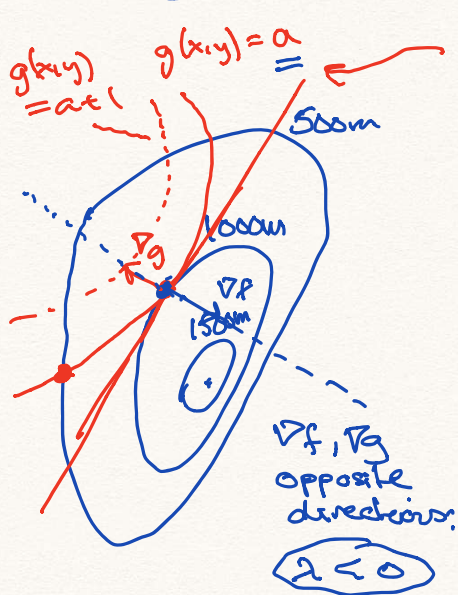 g(x,y) = a
g(x,y)
= a+1
500m
1000m
∇g
∇f
1500m
∇f, ∇g
opposite
directions.
λ < 0